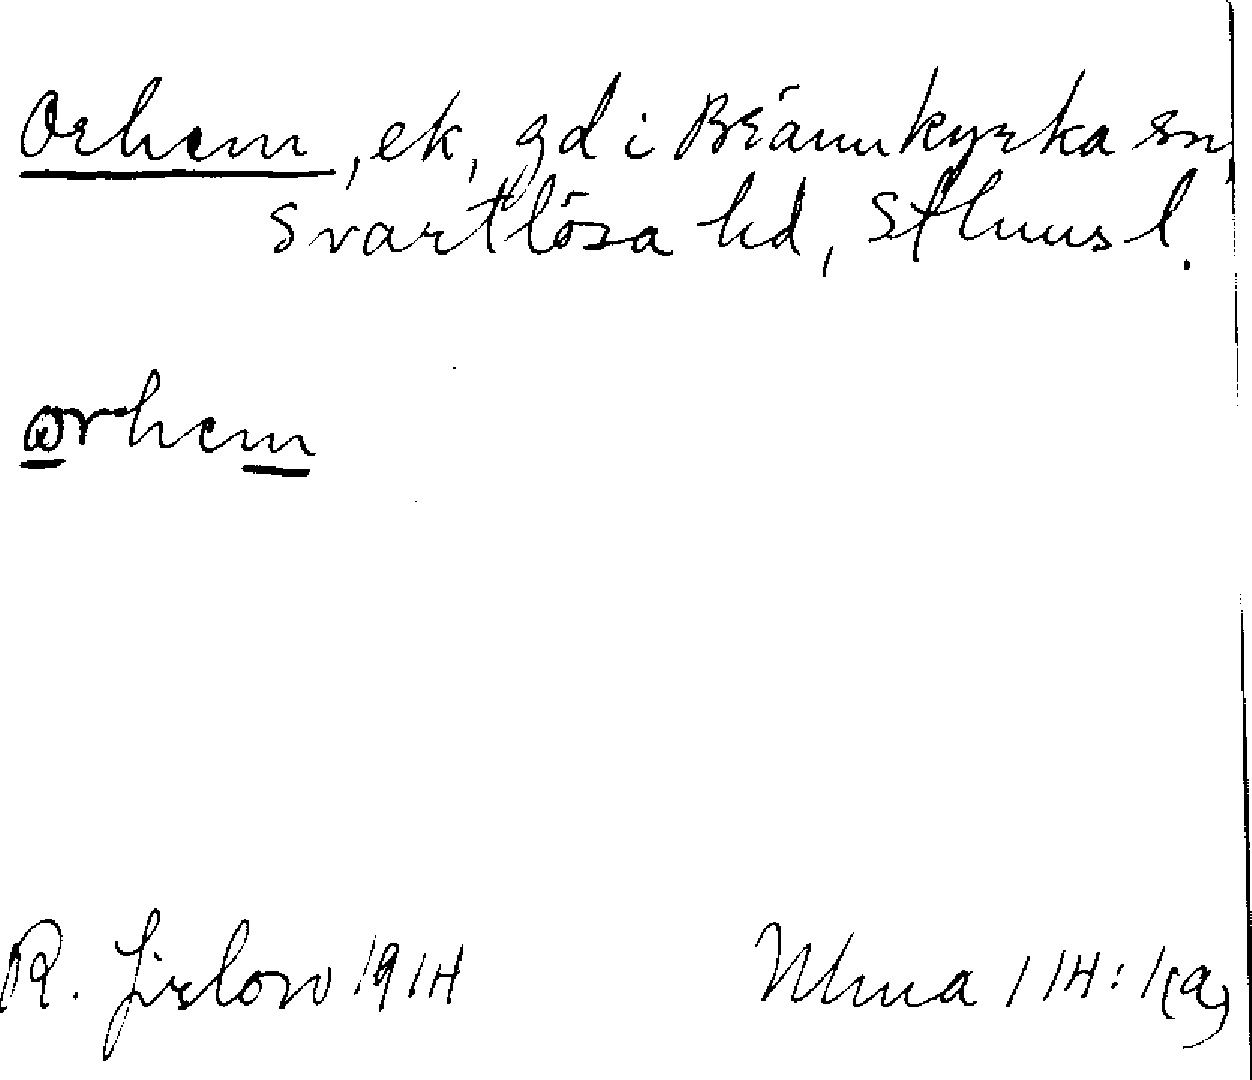 Orhem, ek, gd i Brännkyrka sn,
Svartlösa hd, Sthms l.
orhem
R. Jirlow 1914
Ulma 114:1(a)